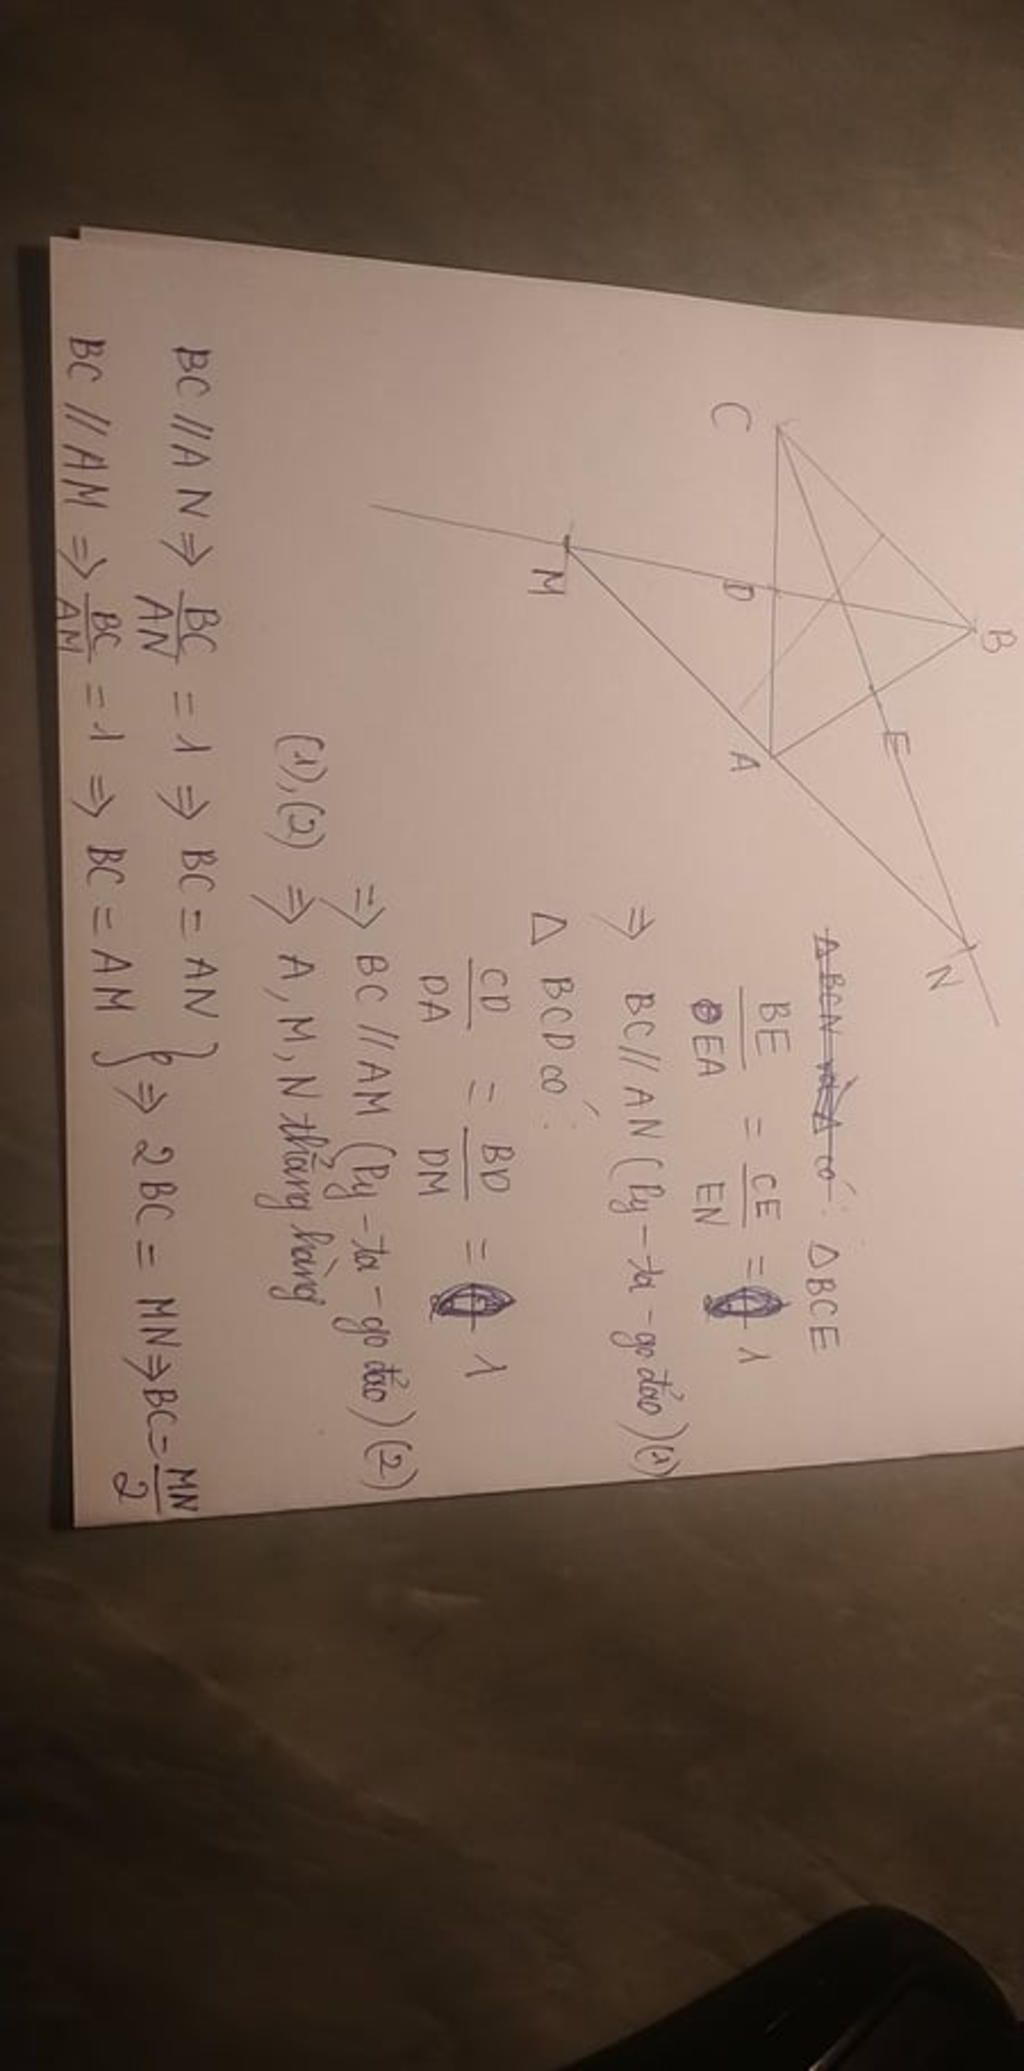 B
C
D
E
A
M
N
Δ BCN và Δ có: Δ BCE
BE/EA = CE/EN = 1
⇒ BC // AN (Py-ta-go đảo) (1)
Δ BCD có:
CD/DA = BD/DM = 1
⇒ BC // AM (Py-ta-go đảo) (2)
(1), (2) ⇒ A, M, N thẳng hàng
BC // AN ⇒ BC/AN = 1 ⇒ BC = AN
BC // AM ⇒ BC/AM = 1 ⇒ BC = AM } ⇒ 2BC = MN ⇒ BC = MN/2